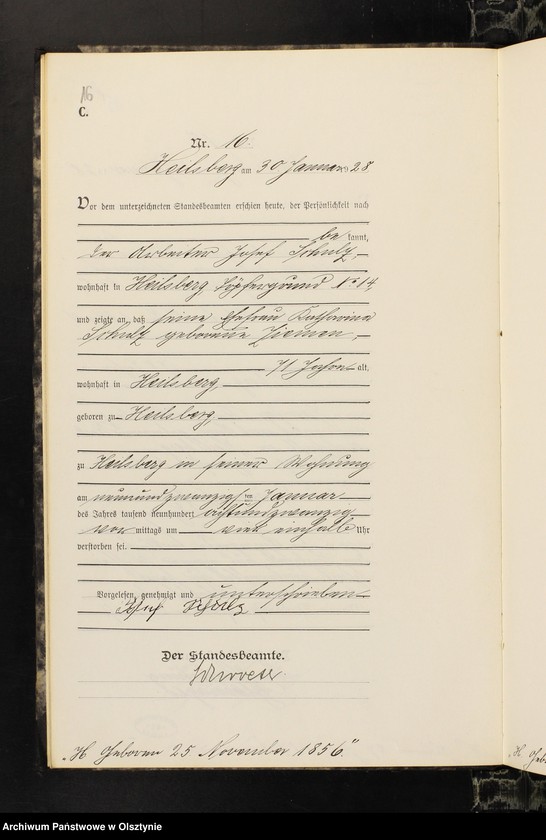 16
C.
Nr. 16.
Heilsberg am 30 Januar 1928
Vor dem unterzeichneten Standesbeamten erschien heute, der Persönlichkeit nach
be kannt,
der Arbeiter Josef Schulz,
wohnhaft in Heilsberg, Töpfergrund No 14
und zeigte an, daß seine Ehefrau Katharina
Schulz geborene
71 Jahre alt,
wohnhaft in Heilsberg,
geboren zu Heilsberg,
zu Heilsberg in seiner Wohnung
am neunundzwanzig ten Januar
des Jahres tausend neunhundert achtundzwanzig
vor mittags um vier einhalb Uhr
verstorben sei.
Vorgelesen, genehmigt und unterschrieben
Josef Schulz
Der Standesbeamte.
„H. Geboren 25 November 1856“
Archiwum Państwowe w Olsztynie